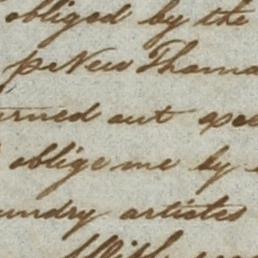 obliged by the
p New Thoma
urned out
oblige me by
undry articles
With